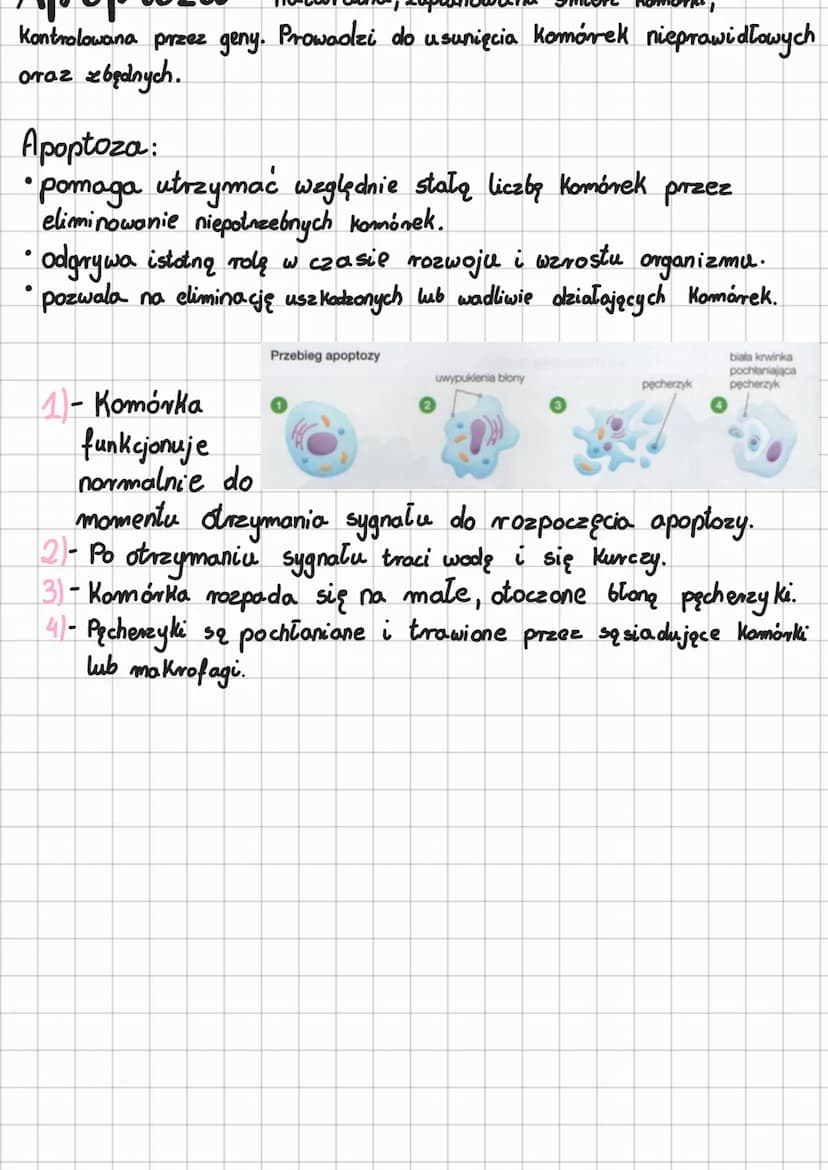 Apoptoza naturalna, zaplanowana śmierć komórki,
kontrolowana przez geny. Prowadzi do usunięcia komórek nieprawidłowych
oraz zbędnych.
Apoptoza:
• pomaga utrzymać względnie stałą liczbę komórek przez
eliminowanie niepotrzebnych komórek.
• odgrywa istotną rolę w czasie rozwoju i wzrostu organizmu.
• pozwala na eliminację uszkodzonych lub wadliwie działających komórek.
Przebieg apoptozy
uwypuklenia błony
pęcherzyk
biała krwinka
pochłaniająca
pęcherzyk
1 2 3 4
1)- Komórka
funkcjonuje
normalnie do
momentu otrzymania sygnału do rozpoczęcia apoptozy.
2)- Po otrzymaniu sygnału traci wodę i się kurczy.
3)- Komórka rozpada się na małe, otoczone błoną pęcherzyki.
4)- Pęcherzyki są pochłaniane i trawione przez sąsiadujące komórki
lub makrofagi.